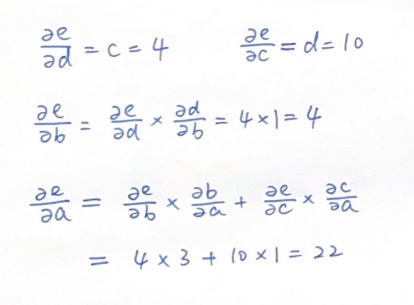 ∂e/∂d = c = 4    ∂e/∂c = d = 10
∂e/∂b = ∂e/∂d × ∂d/∂b = 4 × 1 = 4
∂e/∂a = ∂e/∂b × ∂b/∂a + ∂e/∂c × ∂c/∂a
= 4 × 3 + 10 × 1 = 22